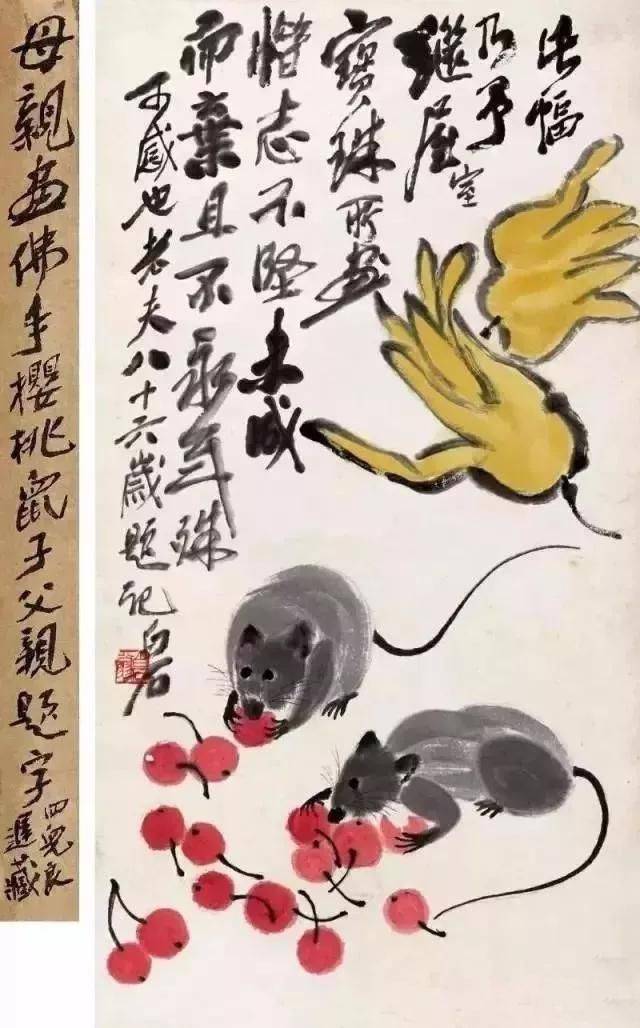 此幅
乃予
繼屋室
寶珠所畫
惜志不堅未成
而棄且不永年殊
可感也老夫八十六歲題記白石
母親畫佛手櫻桃鼠子父親題字
四兒良
遲藏